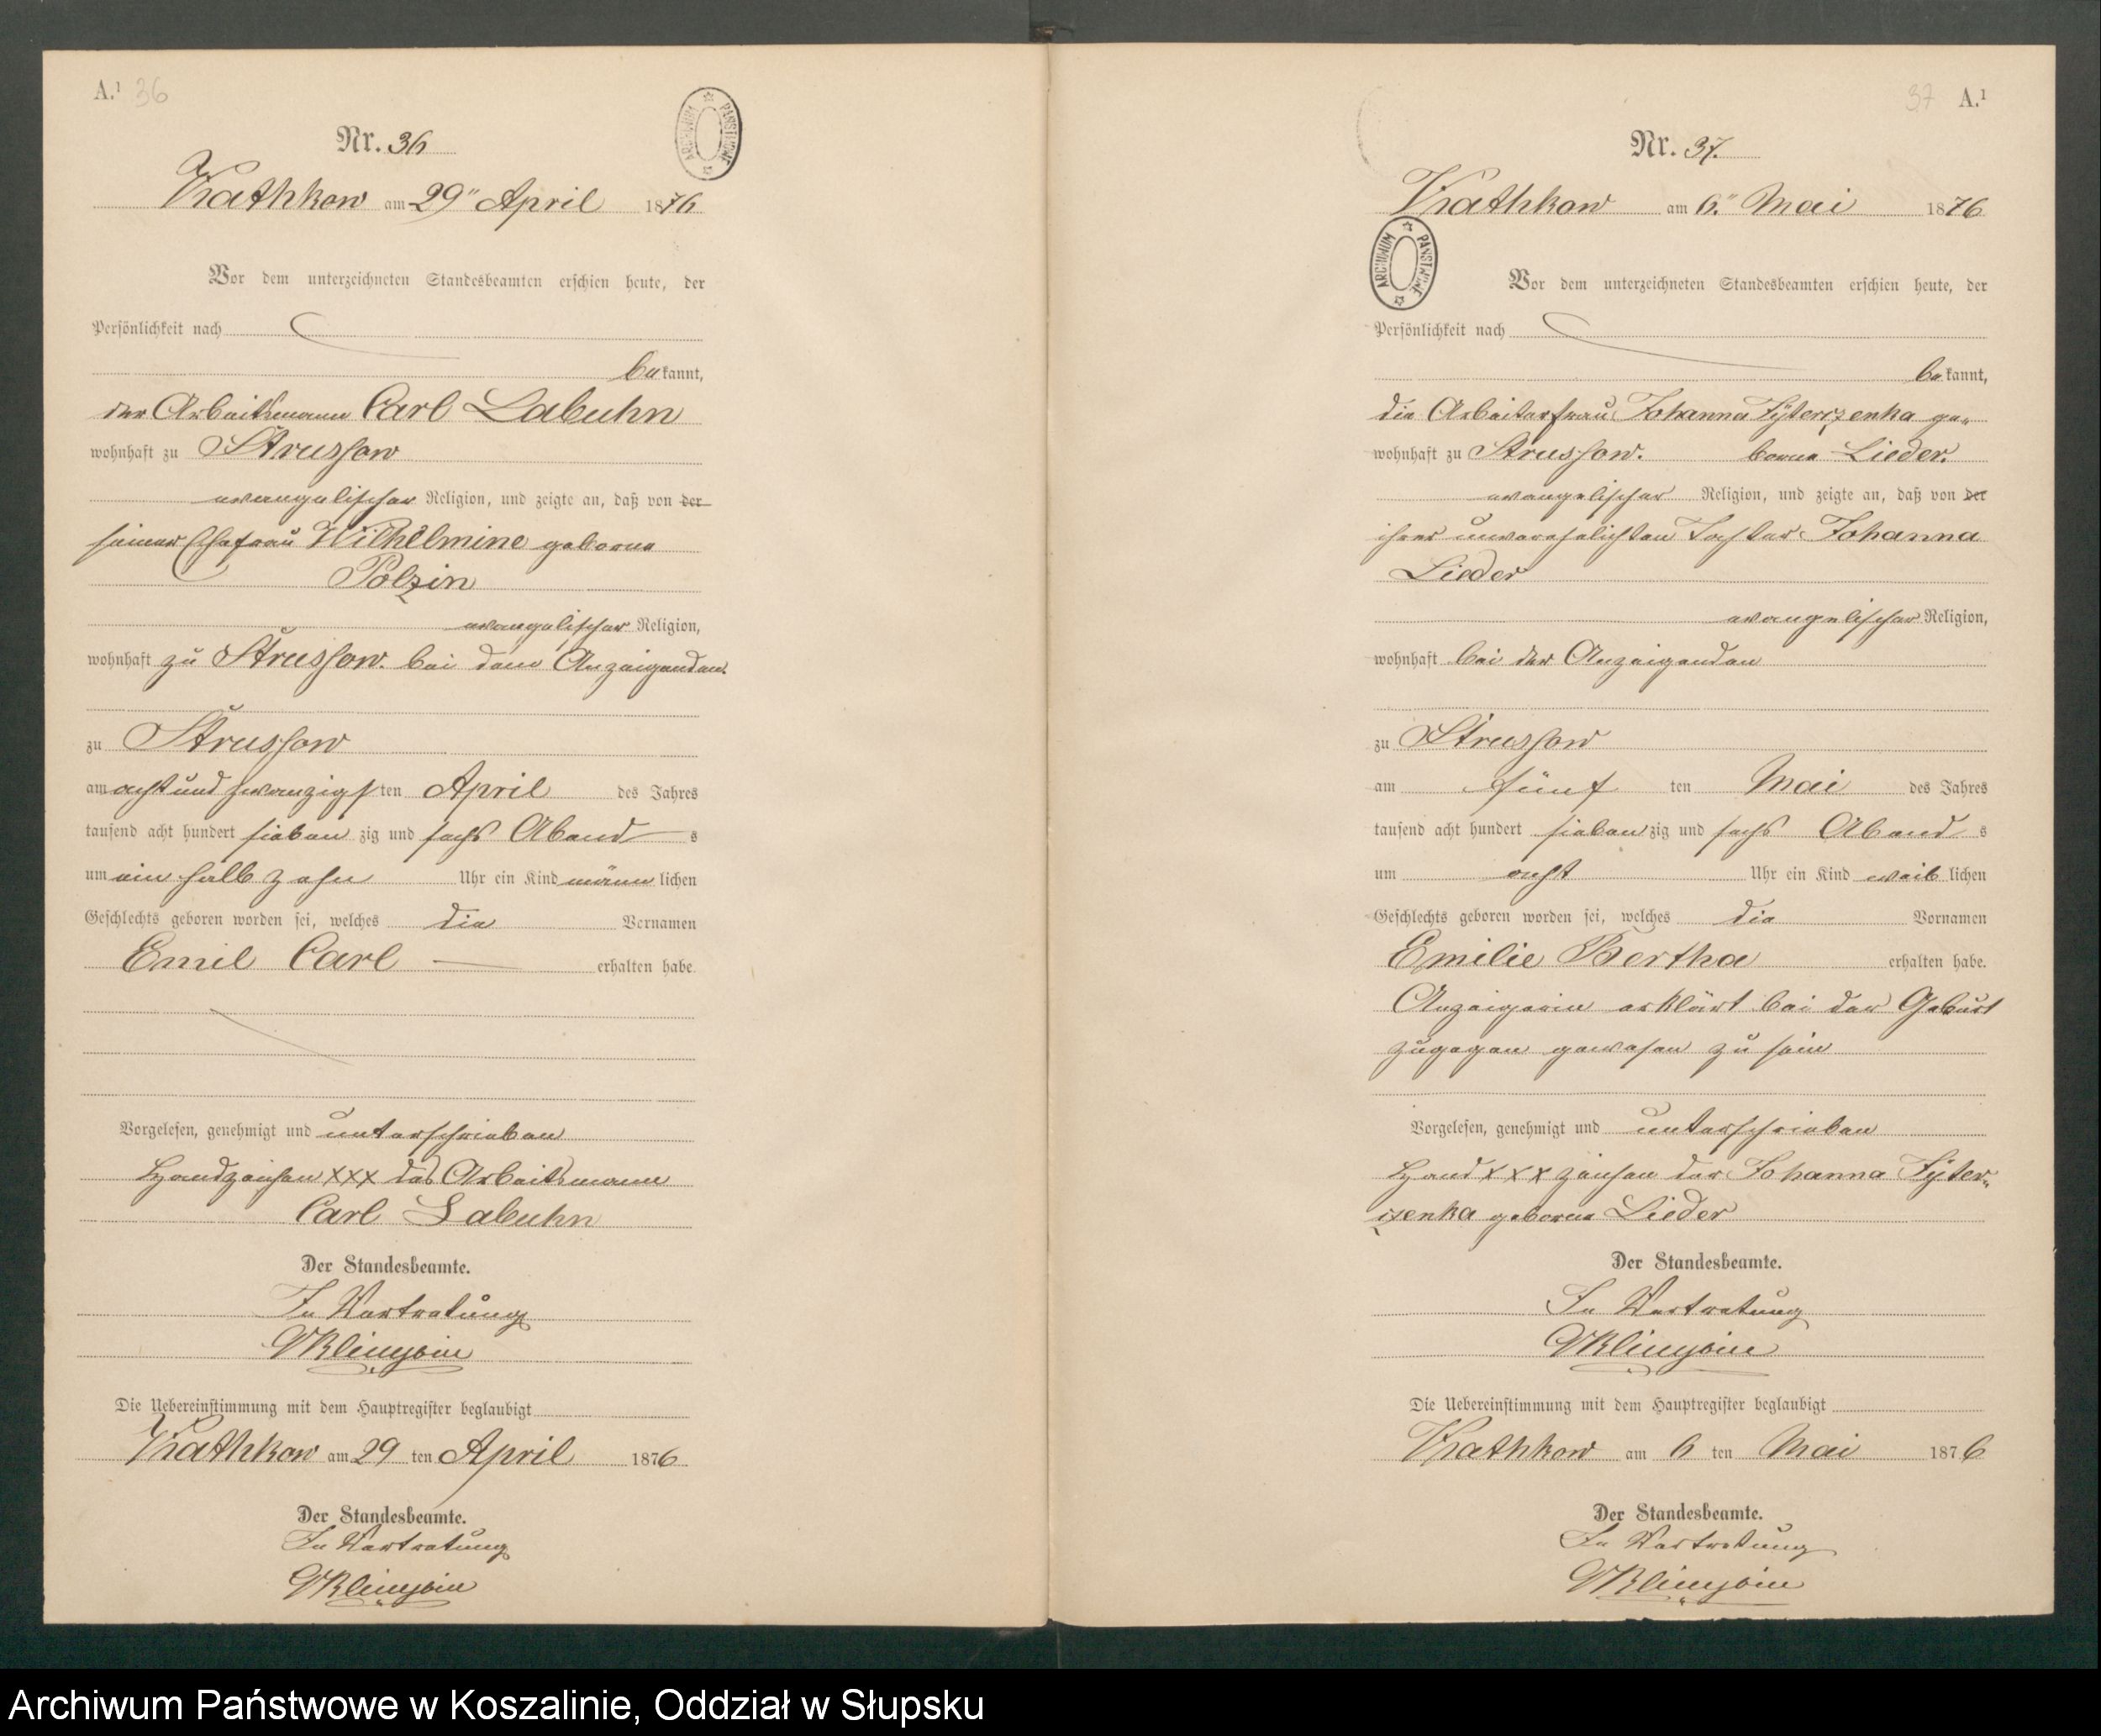 A.¹ 36
Nr. 36
ARCHIWUM PAŃSTWOWE
Wrathkow am 29" April 1876
Vor dem unterzeichneten Standesbeamten erschien heute, der
Persönlichkeit nach
bekannt,
der Arbeitsmann Carl Labuhn
wohnhaft zu Strussow
evangelischer Religion, und zeigte an, daß von der
seiner Ehefrau Wilhelmine geborne
Polzin
evangelischer Religion,
wohnhaft zu Strussow. bei dem Anzeigenden.
zu Strussow
am acht und zwanzigsten April des Jahres
tausend acht hundert siebenzig und sechs Abends
um ein halb zehn Uhr ein Kind männlichen
Geschlechts geboren worden sei, welches die Vornamen
Emil Carl erhalten habe.
Vorgelesen, genehmigt und unterschrieben
Handzeichen XXX des Arbeitsmann
Carl Labuhn
Der Standesbeamte.
In Vertretung
Die Uebereinstimmung mit dem Hauptregister beglaubigt
Wrathkow am 29 ten April 1876
Der Standesbeamte.
In Vertretung
37 A.¹
Nr. 37.
Wrathkow am 6." Mai 1876
ARCHIWUM PAŃSTWOWE
Vor dem unterzeichneten Standesbeamten erschien heute, der
Persönlichkeit nach
bekannt,
die Arbeiterfrau Johanna Fyterczenka ge-
wohnhaft zu Strussow. borne Lieder.
evangelischer Religion, und zeigte an, daß von der
ihrer unverehelichten Tochter Johanna
Lieder
evangelischer Religion,
wohnhaft bei der Anzeigenden
zu Strussow
am fünf ten Mai des Jahres
tausend acht hundert siebenzig und sechs Abends
um acht Uhr ein Kind weiblichen
Geschlechts geboren worden sei, welches die Vornamen
Emilie Bertha erhalten habe.
Anzeigerin erklärt bei der Geburt
zugegen gewesen zu sein
Vorgelesen, genehmigt und unterschrieben
Hand XXX zeichen der Johanna Fyter-
czenka geborne Lieder
Der Standesbeamte.
In Vertretung
Die Uebereinstimmung mit dem Hauptregister beglaubigt
Wrathkow am 6 ten Mai 1876
Der Standesbeamte.
In Vertretung
Archiwum Państwowe w Koszalinie, Oddział w Słupsku